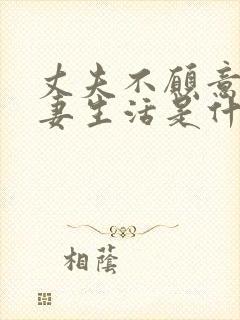 丈夫不愿意
妻生活是什
相蔭